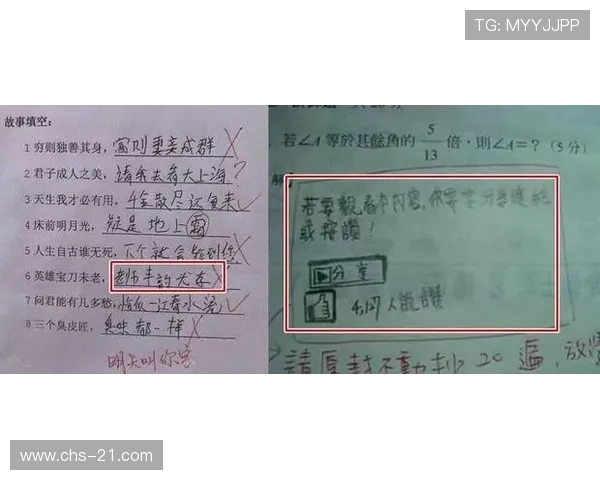 TG: MYYJJPP
故事填空：
1 穷则独善其身，富则妻妾成群
2 君子成人之美，请你去看大上海？
3 天生我才必有用，千金散尽还复来
4 床前明月光，疑是地上霜
5 人生自古谁无死，下个就会轮到你
6 英雄宝刀未老，
7 问君能有几多愁，恰似一江春水流
8 三个臭皮匠，臭味都一样
明天叫你家
若∠A 等於其餘角的 5/13 倍，則∠A=？（5分）
解
若要觀看本內容，你需要分享連結
或按讚！
分享
4,127 人說讚
請原封不動抄 20 遍，放學
www.chs-21.com